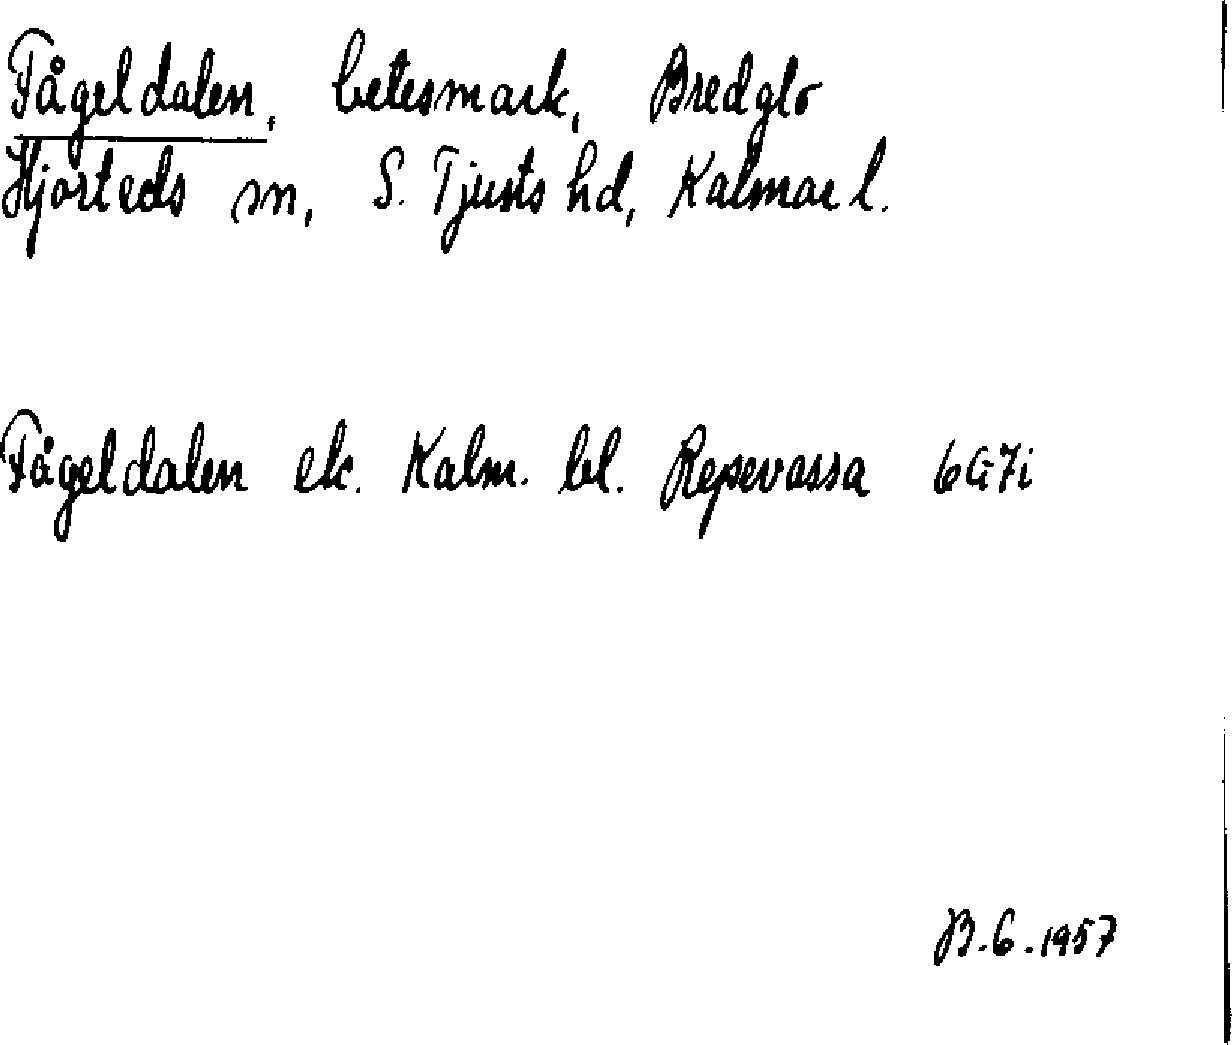 Fågeldalen, betesmark, Bredglo
Hjorteds sn, S. Tjusts hd, Kalmar l.
Fågeldalen ek. Kalm. bl. Repsevassa 6G7i
B.G.1957